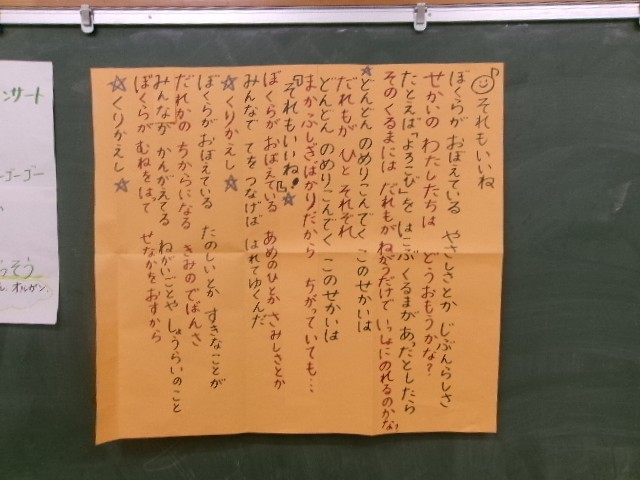 ♪それもいいね
ぼくらが おぼえている やさしさとか じぶんらしさ
せかいの わたしたちは どうおもうかな?
たとえば「よろこび」を はこぶ くるまが あったとしたら
そのくるまには だれもが ねがうだけで いっしょにのれるのかな?
☆どんどん のめりこんでく このせかいは
だれもが ひと それぞれ
どんどん のめりこんでく このせかいは
まかふしぎばかりだから ちがっていても…
『それもいいね!』☆
ぼくらがおぼえている あめのひとか さみしさとか
みんなで てを つなげば はれてゆくんだ
☆くりかえし☆
ぼくらが おぼえている たのしいとか すきなことが
だれかの ちからになる きみのでばんさ
みんなが かんがえてる ねがいごとや しょうらいのこと
ぼくらが むねをはって せなかをおすから
☆くりかえし☆
ンサート
ーゴーゴー
っそう
オルガン